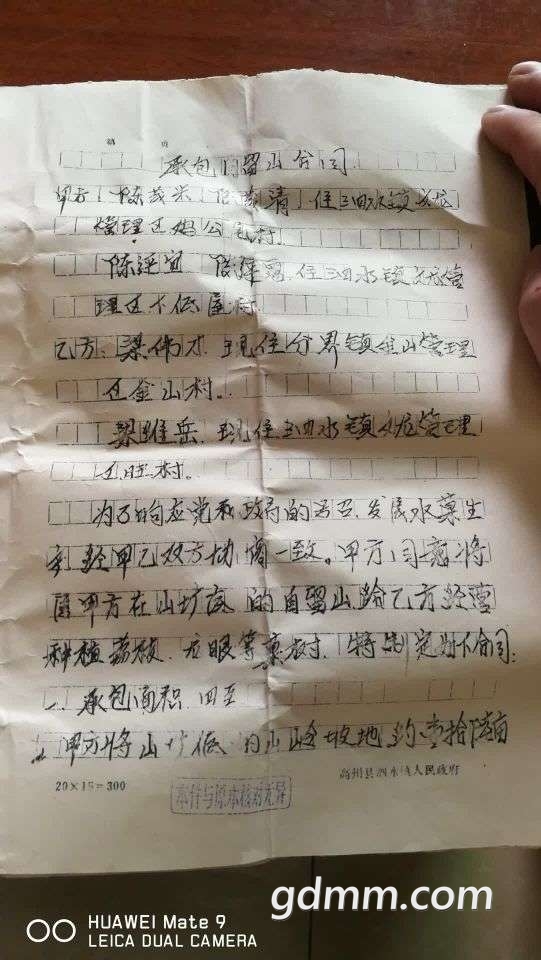 第 页
承包自留山合同
甲方：陈茂 陈 清 住泗水镇
管理区 公 村
陈 宜 陈 住泗水镇 管
理区下低 村
乙方：梁伟才 现住分界镇 山管理
区金山村。
梁维岳 现住泗水镇 管理
旺村。
为了响应党和政府的号召，发展水果生
产 经甲乙双方协商一致。甲方同意将
甲方在山坡底的自留山给乙方经营
种植荔枝、龙眼等果树，特制定如下合同：
一、承包面积、四至
甲方将山 低的山岭坡地约壹拾陆亩
20×15=300
本件与原本核对无异
高州县泗水镇人民政府
gdmm.com
HUAWEI Mate 9
LEICA DUAL CAMERA